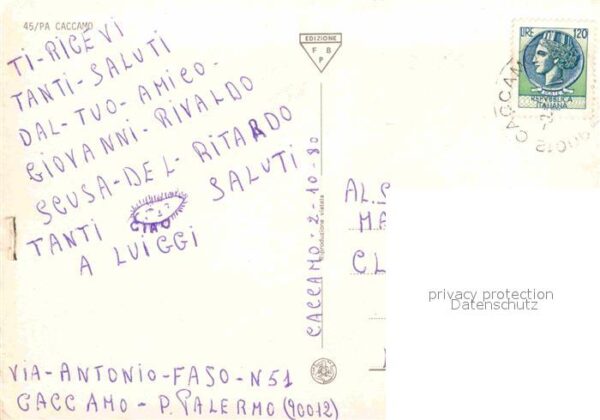 45/PA CACCAMO
TI-RICEVI
TANTI-SALUTI
DAL-TUO-AMICO-
GIOVANNI-RIVALDO
SCUSA-DEL-RITARDO
TANTI CIAO SALUTI
A LUIGGI
VIA-ANTONIO-FASO-N51
CACCAMO-P.PALERMO(90012)
EDIZIONE
F B
P
CACCAMO-2-10-80
Riproduzione vietata
LIRE 120
REPVBBLICA
ITALIANA
CACCAM
AL.S
MA
CL
privacy protection
Datenschutz